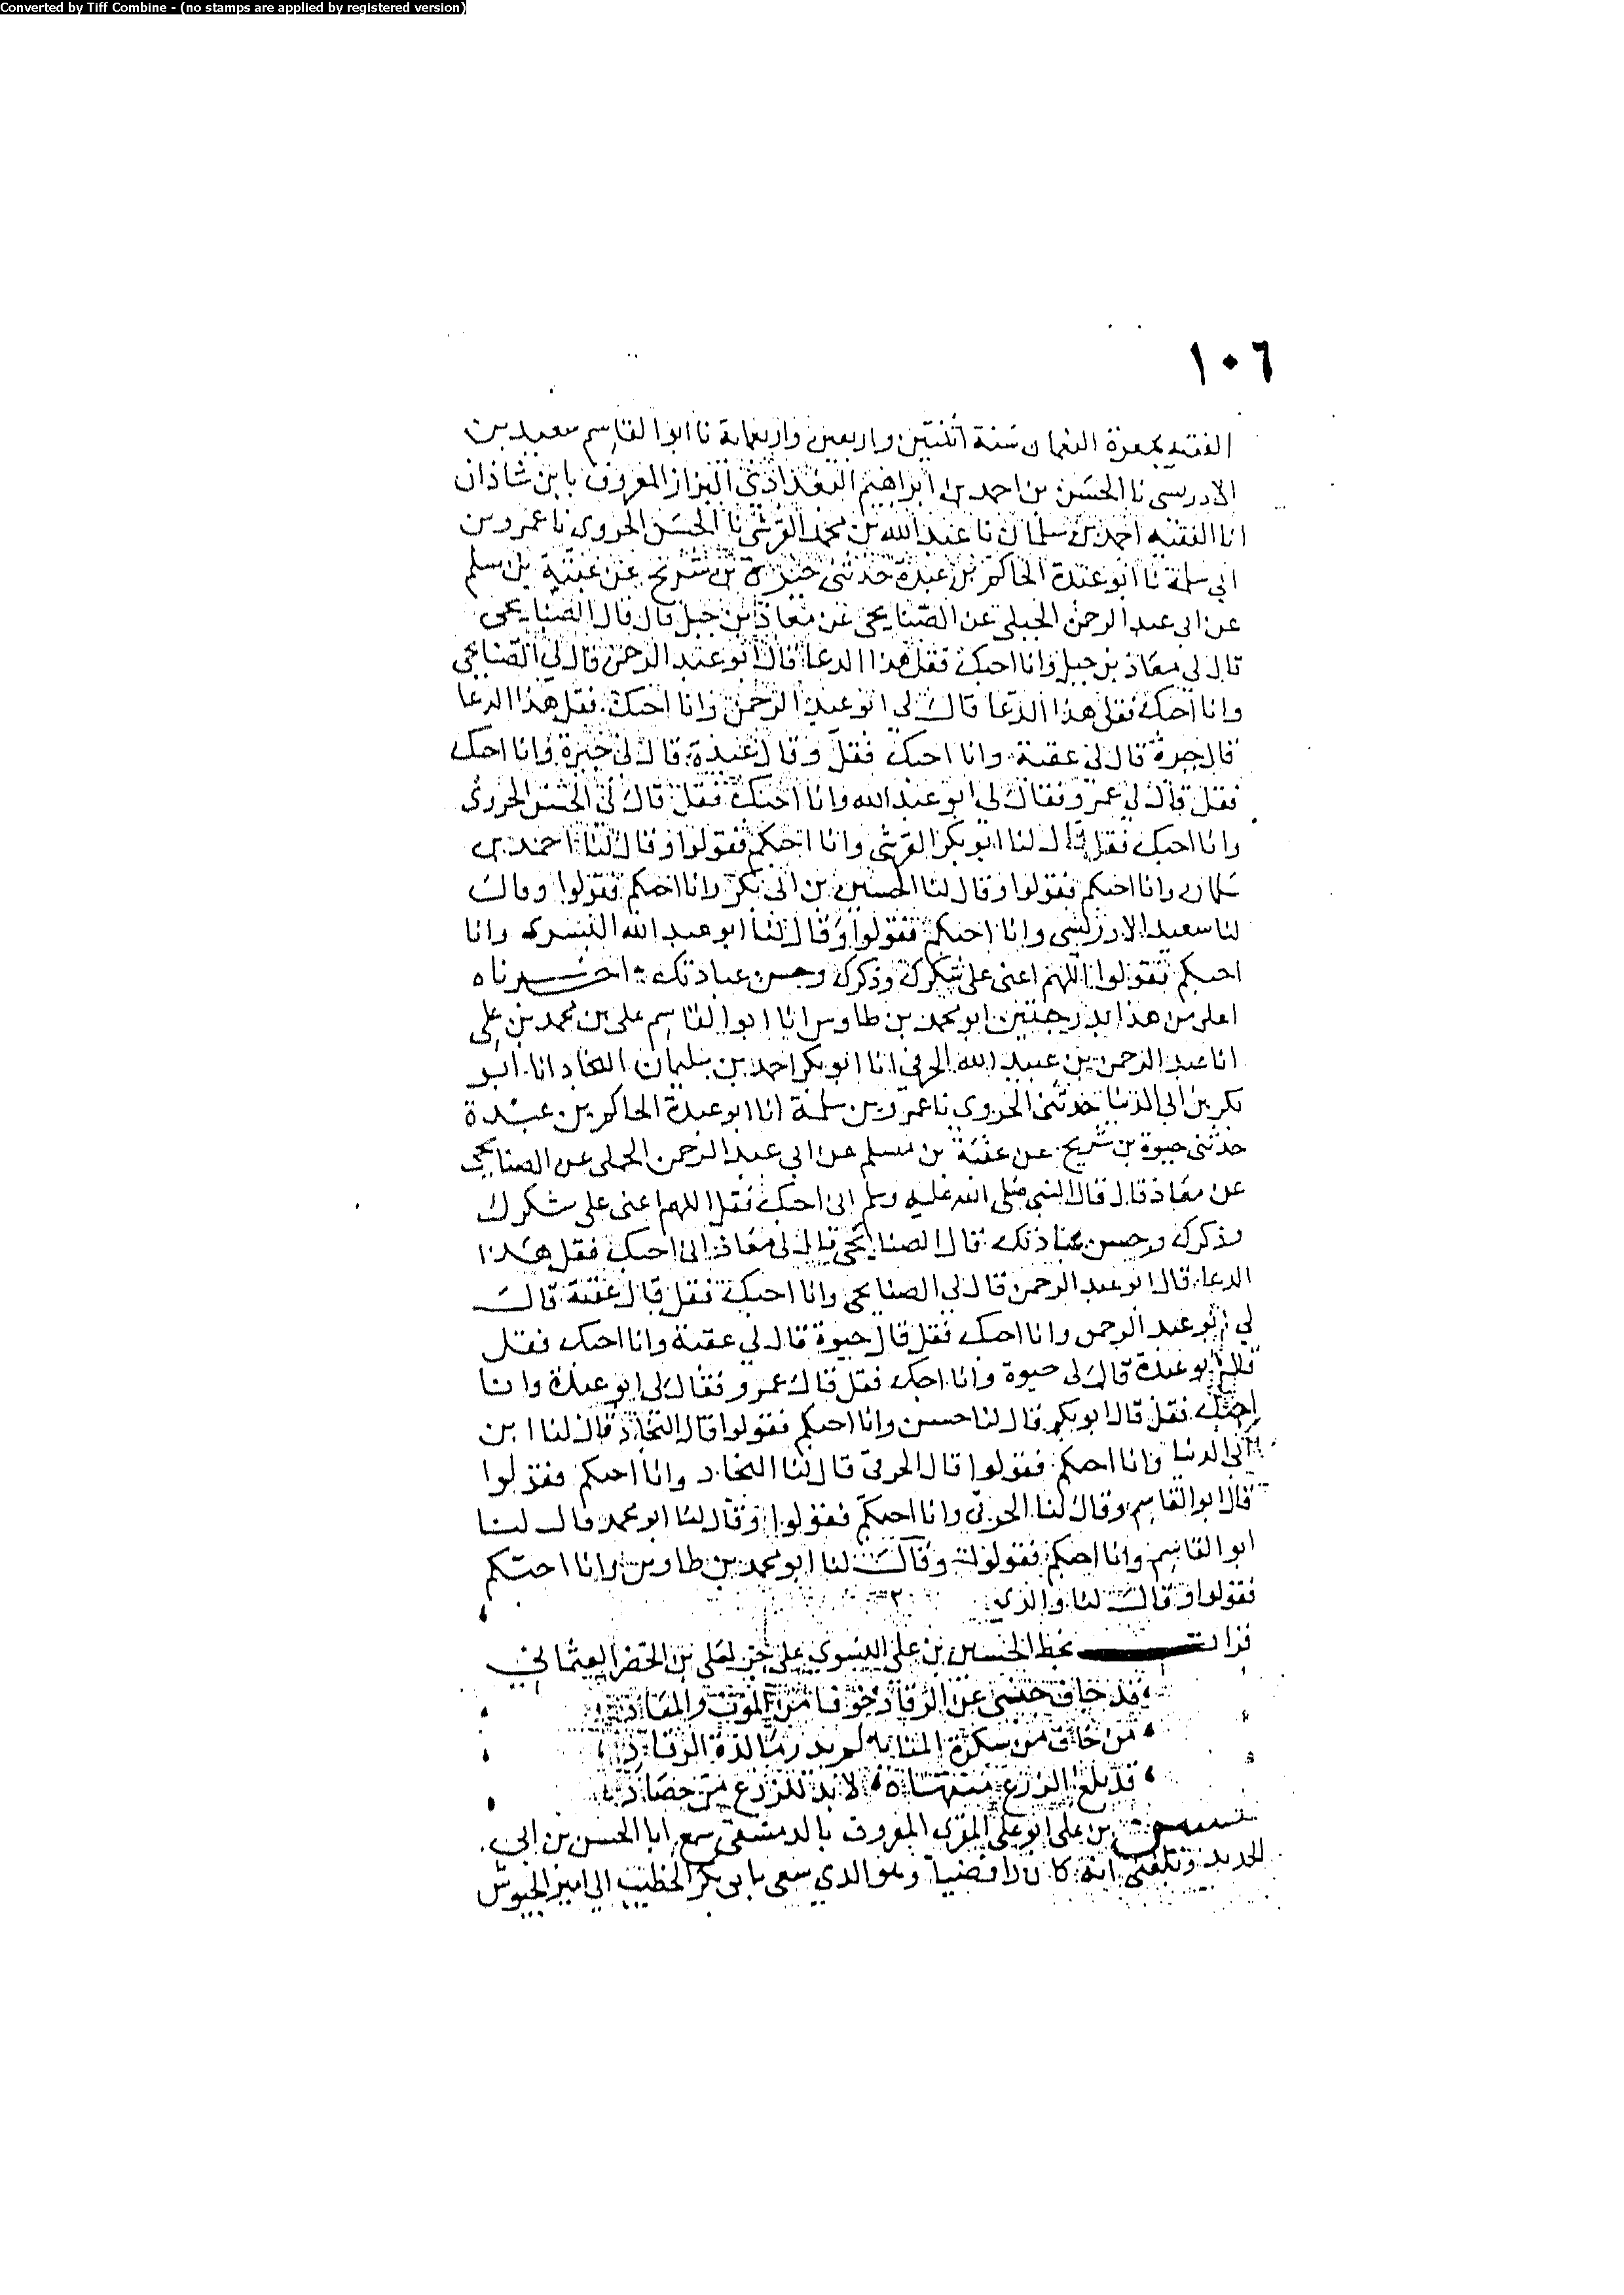 Converted by Tiff Combine - (no stamps are applied by registered version)
١٠٦
الفقيه بمعرة النعمان سنة اثنتين واربعين واربعماية نا ابو القاسم سعيد بن
الادريسى نا الحسن بن احمد بن ابراهيم البغدادي البزاز المعروف بابن شاذان
انا الفقيه احمد بن سلمان نا عبد الله بن محمد القرشي نا الحسن الجروى نا عمرو بن
ابي سلمة نا ابو عبدة الحاكم بن عبدة حدثنى حيوة بن شريح عن عقبة بن مسلم
عن ابى عبد الرحمن الجبلي عن الصنابحى عن معاذ بن جبل قال قال الصنابحى
قال لي معاذ بن جبل وانا احبك فقل هذا الدعا قال ابو عبد الرحمن قال لي الصنابحى
وانا احبك فقل هذا الدعا قال لي ابو عبد الرحمن وانا احبك فقل هذا الدعا
قال حيوة قال لي عقبة وانا احبك فقل وقال عبدة قال لي حيوة وانا احبك
فقل قال لي عمرو فقال لي ابو عبد الله وانا احبك فقل قال لي الحسن الجروى
وانا احبك فقل قال لنا ابو بكر القرشي وانا احبكم فقولوا وقال لنا احمد بن
سلمان وانا احبكم فقولوا وقال لنا الحسين بن ابى بكر وانا احبكم فقولوا وقال
لنا سعيد الادريسي وانا احبكم فقولوا وقال لنا ابو عبد الله وانا
احبكم فقولوا اللهم اعنى على شكرك وذكرك وحسن عبادتك اخبرناه
اعلى من هذا بدرجتين ابو محمد بن طاوس انا ابو القاسم على بن محمد بن علي
انا عبد الرحمن بن عبيد الله الحرفي انا ابو بكر احمد بن سليمان النجاد انا ابو
بكر بن ابي الدنيا حدثنى الجروي نا عمرو بن سلمة انا ابو عبدة الحاكم بن عبدة
حدثنى حيوة بن شريح عن عقبة بن مسلم عن ابى عبد الرحمن الجبلى عن الصنابحي
عن معاذ قال قال النبي صلى الله عليه وسلم انى احبك فقل اللهم اعنى على شكرك
وذكرك وحسن عبادتك قال الصنابحى قال لي معاذ انى احبك فقل هذا
الدعا قال ابو عبد الرحمن قال لي الصنابحى وانا احبك فقل قال عقبة قال
لي ابو عبد الرحمن وانا احبك فقل قال حيوة قال لي عقبة وانا احبك فقل
قال ابو عبدة قال لي حيوة وانا احبك فقل قال عمرو فقال لي ابو عبدة وانا
احبك فقل قال ابو بكر قال لنا حسن وانا احبكم فقولوا قال النجاد قال لنا ابن
ابي الدنيا وانا احبكم فقولوا قال الحرفى قال لنا النجاد وانا احبكم فقولوا
قال ابو القاسم وقال لنا الحرفي وانا احبكم فقولوا وقال لنا ابو محمد قال لنا
ابو القاسم وانا احبكم فقولوا وقال لنا ابو محمد بن طاوس وانا احبكم
فقولوا وقال لنا والدي
قرات بخط الحسين بن على على جز لعلي بن الخضر العثماني
قد جاف جنبى عن الرقاد خوفا من الموت والمعاد
من خاف من سكرة المنايا لم يدر ما لذة الرقاد
قد بلغ الزرع منتهاه لا بد للزرع من حصاد
بن على ابو على المقرى المعروف بالدمشقى سمع ابا الحسن بن ابي
الحديد وبلغنى انه كان رافضيا وهو الذي سعى بابى بكر الخطيب الى امير الجيوش